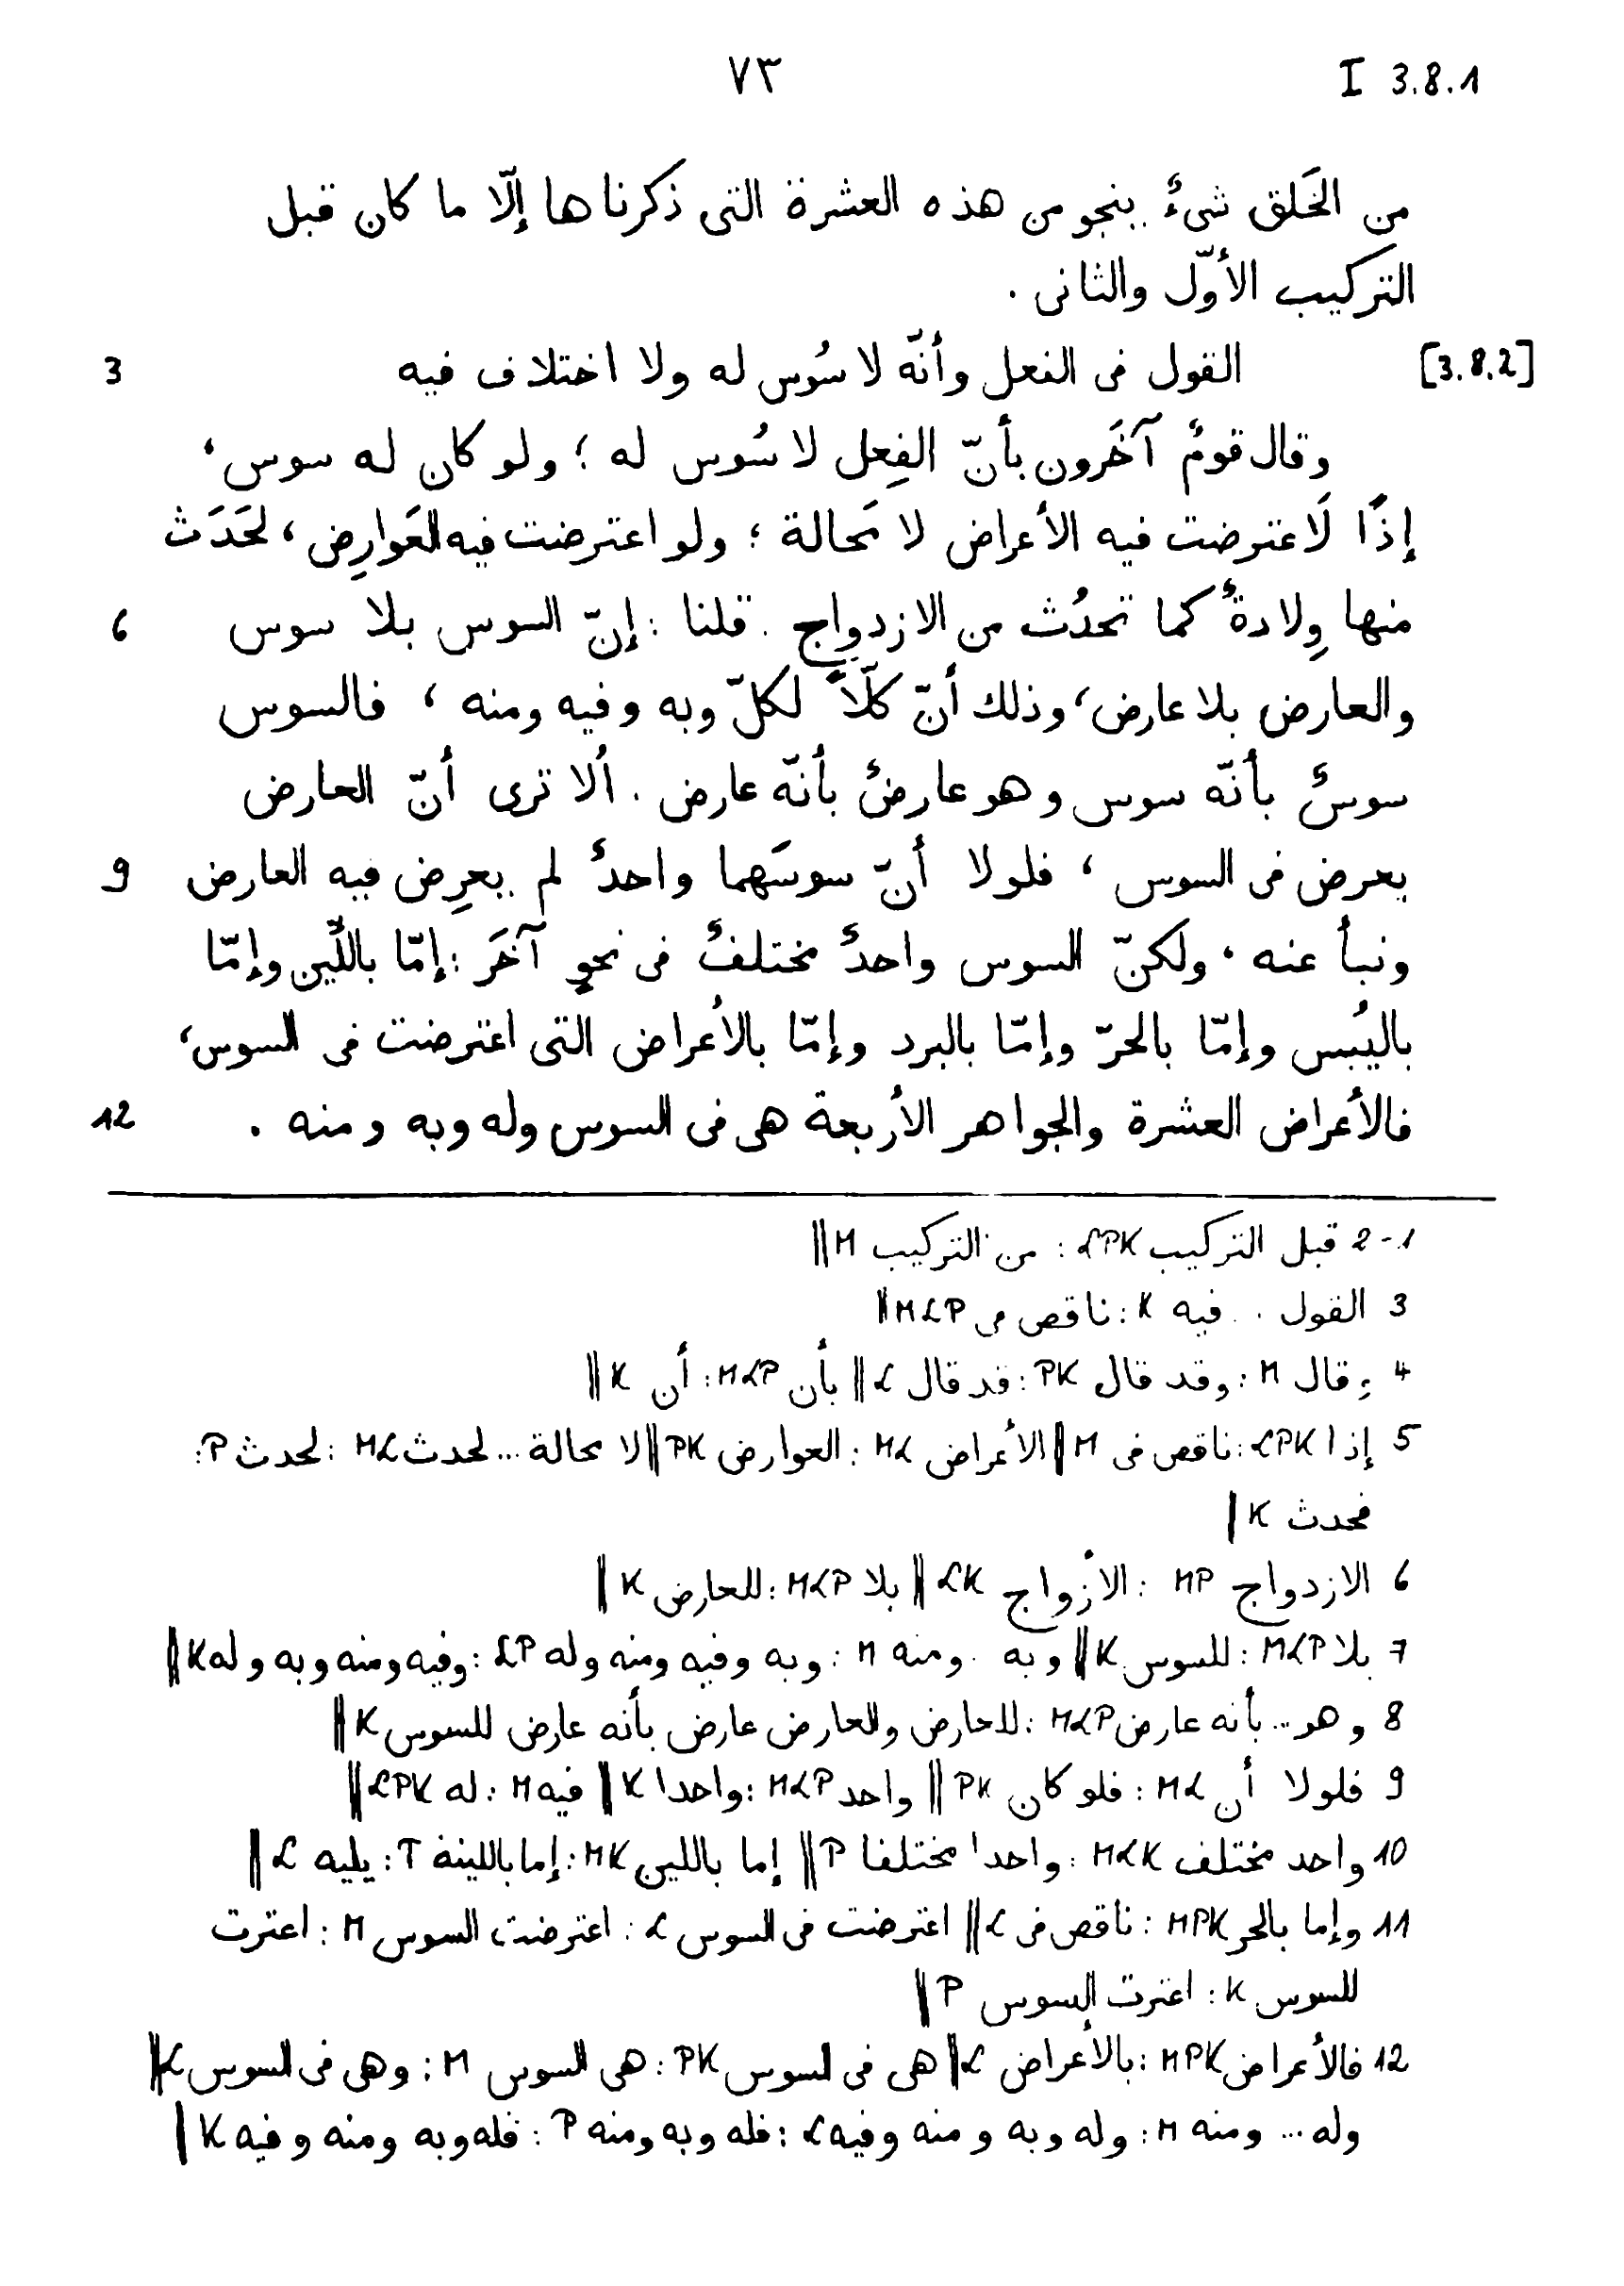 ٧٣ I 3.8.1
من الخَلق شىءٌ ينجو من هذه العشرة التى ذكرناها إلّا ما كان قبل
التركيب الأوّل والثانى .
[3.8.2] القول فى الفعل وأنّه لا سُوس له ولا اختلاف فيه 3
وقال قومٌ آخَرون بأنّ الفِعل لا سُوس له ؛ ولو كان له سوس،
إذًا لَاعترضت فيه الأعراض لا مَحالة ؛ ولو اعترضت فيه العَوارِض، لحَدَث
منها وِلادةٌ كما تحدُث من الازدواج . قلنا : إنّ السوس بلا سوس 6
والعارض بلا عارض، وذلك أنّ كلّاً لكلّ وبه وفيه ومنه ، فالسوس
سوسٌ بأنّه سوس وهو عارضٌ بأنّه عارض . ألا ترى أنّ العارض
يعرض فى السوس ، فلولا أنّ سوسَهما واحدٌ لم يعرِض فيه العارض 9
ونبأ عنه . ولكنّ السوس واحدٌ مختلفٌ فى نحوٍ آخَرَ : إمّا باللّين وإمّا
باليُبس وإمّا بالحرّ وإمّا بالبرد وإمّا بالأعراض التى اعترضت فى السوس،
فالأعراض العشرة والجواهر الأربعة هى فى السوس وله وبه ومنه . 12
1-2 قبل التركيب LPK : من التركيب M ||
3 القول .. فيه K : ناقص من MLP ||
4 وقال M : وقد قال PK : قد قال L || بأن MLP : أن K ||
5 إذا LPK : ناقص فى M || الأعراض ML : العوارض PK || لا محالة ... لحدث ML : لحدث P :
فحدث K |
6 الازدواج MP : الأزواج LK || بلا MLP : للعارض K ||
7 بلا MLP : للسوس K || وبه .. ومنه M : وبه وفيه ومنه وله LP : وفيه ومنه وبه وله K ||
8 وهو .. بأنه عارض MLP : للعارض والعارض عارض بأنه عارض للسوس K ||
9 فلولا أن ML : فلو كان PK || واحد MLP : واحدا K || فيه M : له LPK ||
10 واحد مختلف MLK : واحدا مختلفا P || إما باللين MK : إما باللينة T : يليه L ||
11 وإما بالحر MPK : ناقص فى L || اعترضت فى السوس L : اعترضت السوس M : اعترت
للسوس K : اعترت السوس P ||
12 فالأعراض MPK : بالأعراض L || هى فى السوس PK : هى السوس M : وهى فى السوس L ||
وله ... ومنه M : وله وبه ومنه وفيه L : فله وبه ومنه P : فله وبه ومنه وفيه K |